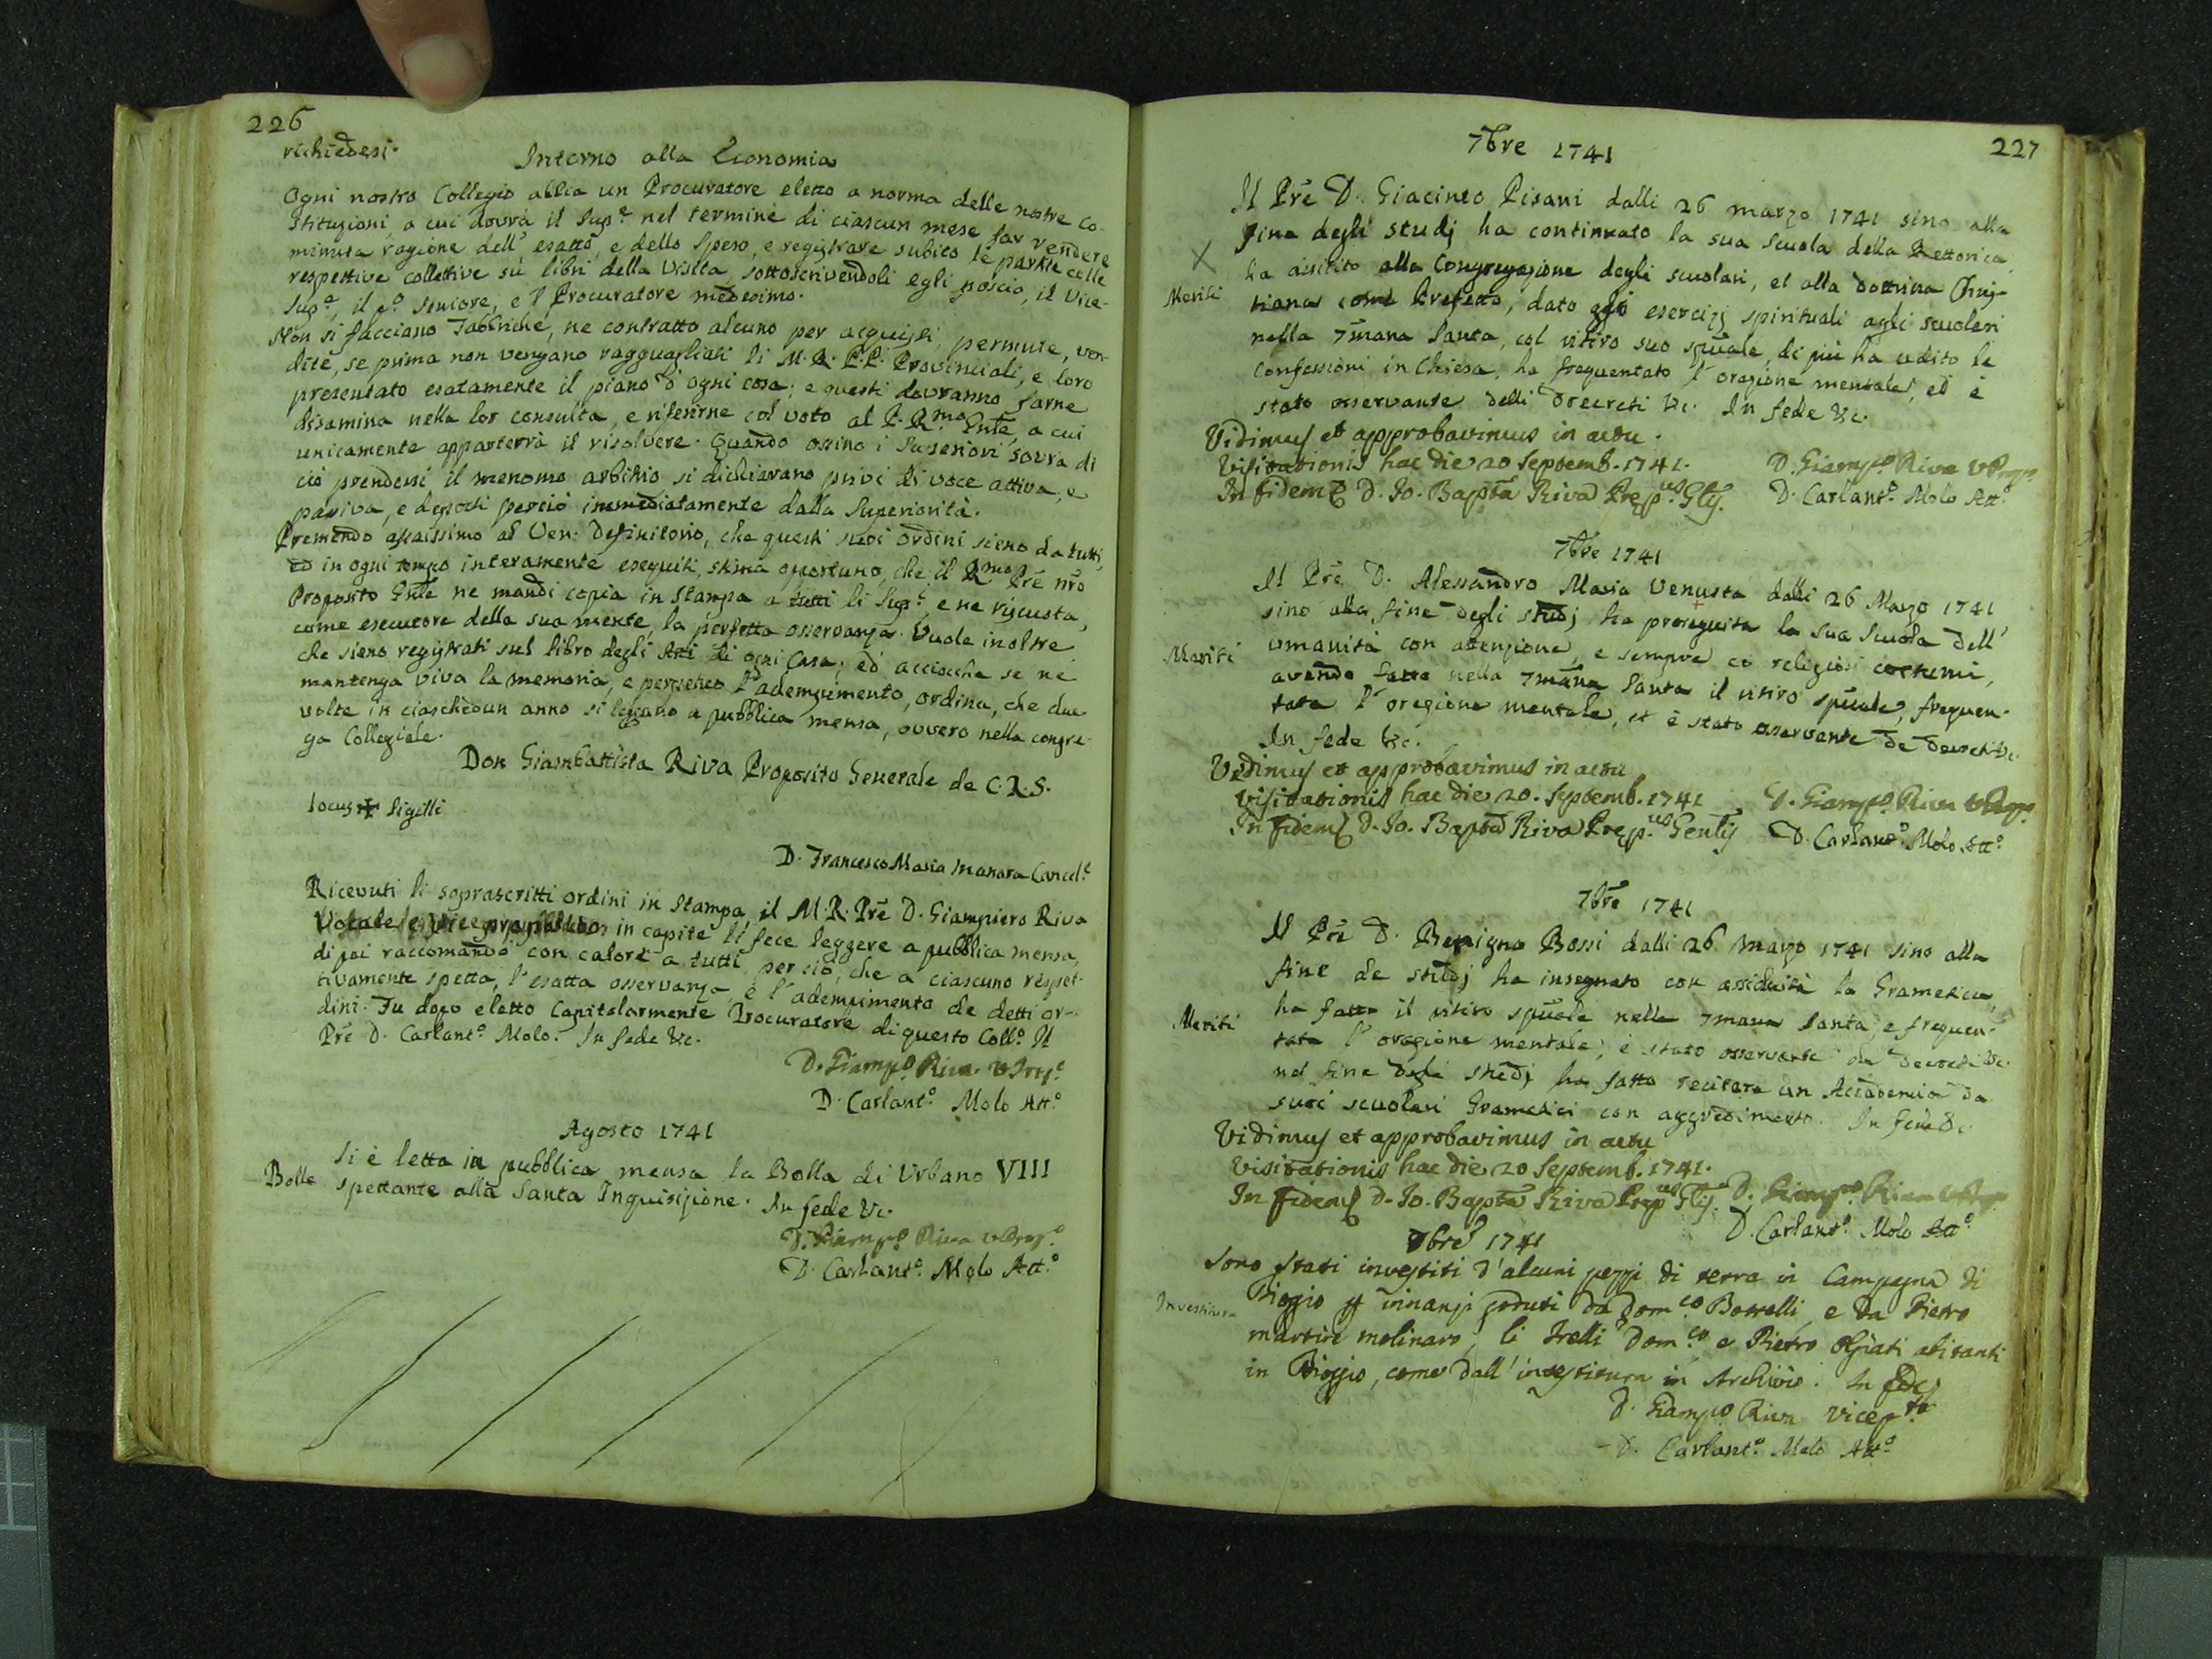 226
richiedesi.
Intorno alla Economia
Ogni nostro Collegio abbia un Procuratore eletto a norma delle nostre Co-
stituzioni, a cui dovrà il Supe nel termine di ciascun mese far rendere
minuta ragione dell' esatto, e dello speso, e registrare subito le partite colle
respettive collettive sù libri della Visita, sottoscrivendoli egli poscia, il Vice-
Supe, il po Seniore, e 'l Procuratore medesimo.
Non si facciano Fabbriche, ne contratto alcuno per acquisti, permute, ven-
dite, se prima non vengano ragguagliati li M. R. P.P. Provinciali, e loro
presentato esatamente il piano d' ogni cosa; e questi dovranno farne
disamina nella lor consulta, e riferirne col voto al P. Rmo Gnle, a cui
unicamente apparterrà il risolvere. Quando osino i Superiori sovra di
ciò prendersi il menomo arbitrio si dichiarano privi di voce attiva, e
passiva, e deposti perciò immediatamente dalla Superiorità.
Premendo assaissimo al Ven: Definitorio, che questi suoi ordini sieno da tutti,
ed in ogni tempo interamente eseguiti, stima oportuno, che il Rmo Pre nro
Proposito Gnle ne mandi copia in stampa a tutti li Supi, e ne riscuota,
come esecutore della sua mente, la perfetta osservanza. Vuole inoltre
che sieno registrati sul libro degli Atti di ogni Casa; ed acciocche se ne
mantenga viva la memoria, e perpetuo l' adempimento, ordina, che due
volte in ciaschedun anno si leggano a pubblica mensa, ovvero nella congre-
ga Collegiale.
Don Giambattista Riva Proposito Generale de C. R. S.
locus ✠ Sigilli
D. Francesco Maria Manara Cancele
Ricevuti li soprascritti ordini in stampa, il M. R. Pre D. Giampiero Riva
Vocale, in capite li fece leggere a pubblica mensa,
di poi raccomandò con calore a tutti per ciò, che a ciascuno respet-
tivamente spetta, l' esatta osservanza, e l' adempimento de detti or-
dini. Fu dopo eletto Capitolarmente Procuratore di questo Collo Il
Pre D. Carlanto Molo. In fede &c.
D. Giampo Riva VPrepo
D. Carlanto Molo Atto
Agosto 1741
Bolle
Si è letta in pubblica mensa la Bolla di Urbano VIII
spettante alla Santa Inquisizione. In fede &c.
D. Giampo Riva VPrepo
D. Carlanto Molo Atto
227
7bre 1741
Il Pre D. Giacinto Pisani dalli 26 marzo 1741 sino alla
fine degli studj ha continuato la sua scuola della Rettorica,
X
ha assistito alla Congregazione degli scuolari, et alla dottrina Chris-
Meriti
tiana come Prefetto, dato gli esercizj spirituali agli scuolari
nella 7mana santa, col ritiro suo spuale, di più ha udito le
confessioni in Chiesa, ha frequentato l' orazione mentale, ed è
stato osservante delli Decreti &c. In fede &c.
Vidimus et approbavimus in actu
Visitationis hac die 20 Septemb. 1741.
In fidem D. Jo. Bapta Riva Prepus Glis.
D. Giampo Riva VPrepo
D. Carlanto Molo Atto
7bre 1741
Il Pre D. Alessandro Maria Venusta dalli 26 Marzo 1741
sino alla fine degli studj ha proseguita la sua Scuola dell'
Meriti
umanità con attenzione, e sempre co religiosi costumi,
avendo fatto nella 7mana santa il ritiro spuale, frequen-
tata l' orazione mentale, et è stato osservante de decreti &c.
In fede &c.
Vidimus et approbavimus in actu
Visitationis hac die 20. Septemb. 1741
In fidem D. Jo. Bapta Riva Prepus Gentis
D. Giampo Riva VPrepo
D. Carlanto Molo Atto
7bre 1741
Il Pre D. Benigno Bossi dalli 26 marzo 1741 sino alla
fine de studj ha insegnato con assiduità la Gramatica,
Meriti
ha fatto il ritiro spuale nella 7mana santa, e frequen-
tata l' orazione mentale; è stato osservante de decreti &c.
nel fine degli studj ha fatto recitare un Accademia da
suoi scuolari Gramatici con aggradimento. In fede &c
Vidimus et approbavimus in actu
Visitationis hac die 20 Septemb. 1741.
In fidem D. Jo. Bapta Riva Prepus Glis.
D. Giampo Riva VPrepo
D. Carlanto Molo Atto
7bre 1741
Sono stati investiti d' alcuni pezzi di terra in Campagna di
Investitura
Bioggio innanzi goduti da Domco Bottelli, e da Pietro
martire molinaro, li Frelli Domco e Pietro abitanti
in Bioggio, come dall' investitura in Archivio. In fede
D. Giampo Riva Vicepto
D. Carlanto Molo Atto